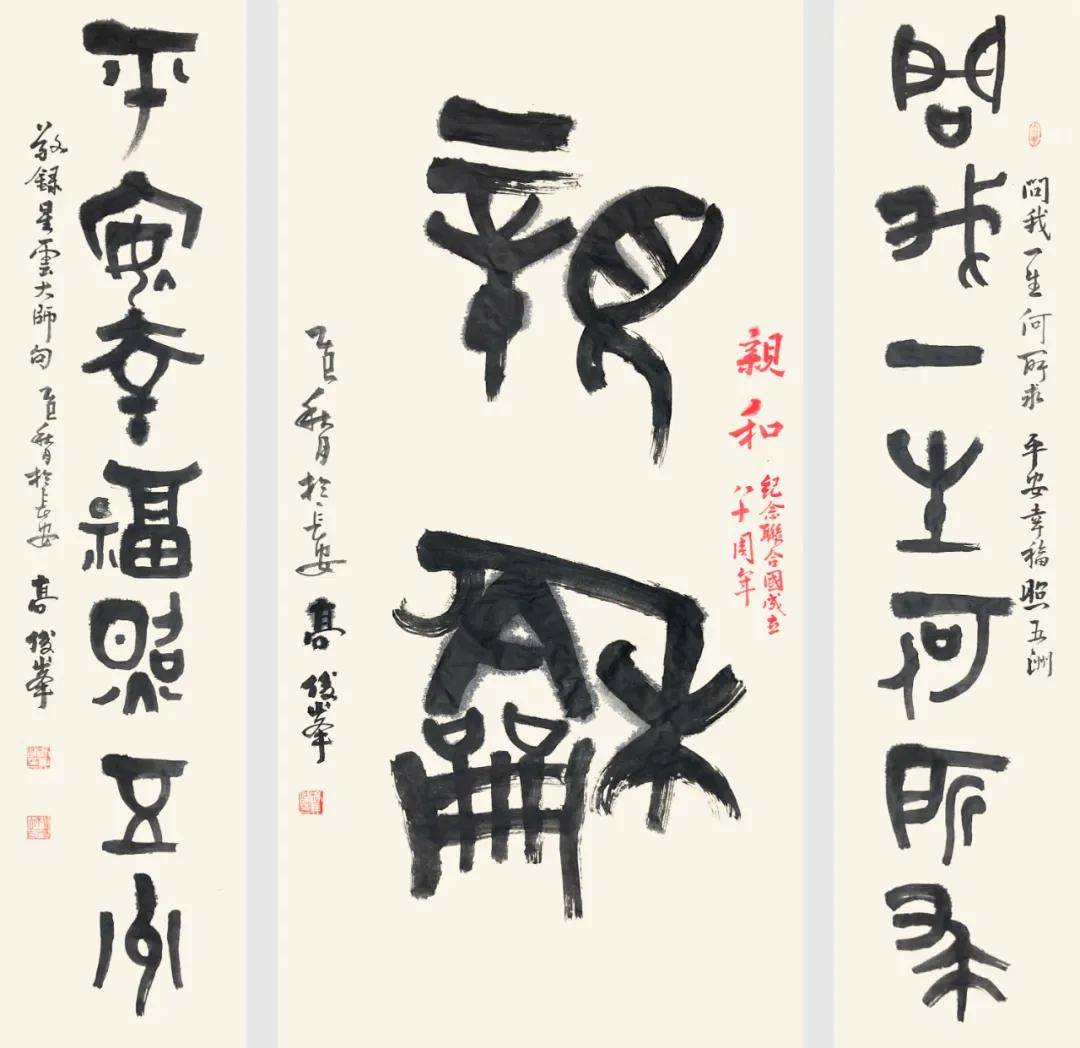 問我一生何所求 平安幸福照五洲
問我一生何所求
親和
紀念聯合國成立
八十周年
親龢
乙巳秋月於長安 髙俊峯
平安幸福照五州
敬録星雲大師句 乙巳秋月於長安 髙俊峯